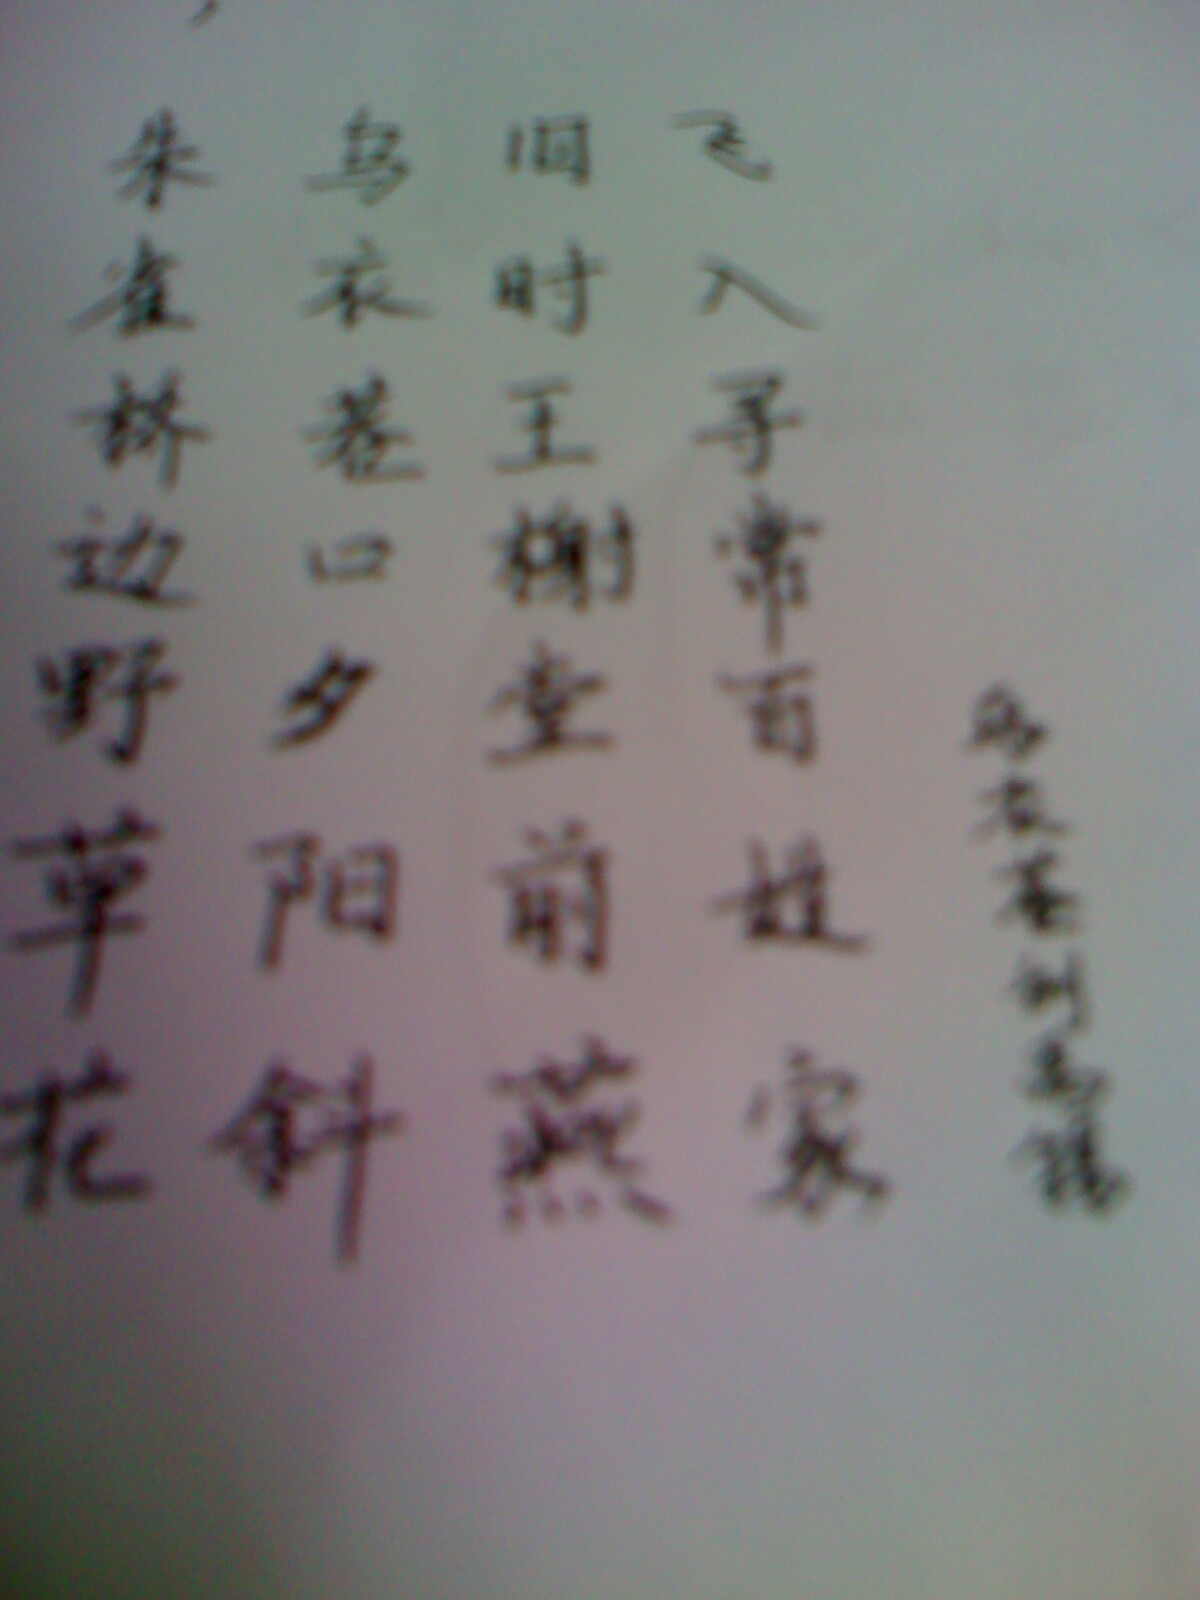 朱雀桥边野草花
乌衣巷口夕阳斜
旧时王榭堂前燕
飞入寻常百姓家
乌衣巷刘禹锡